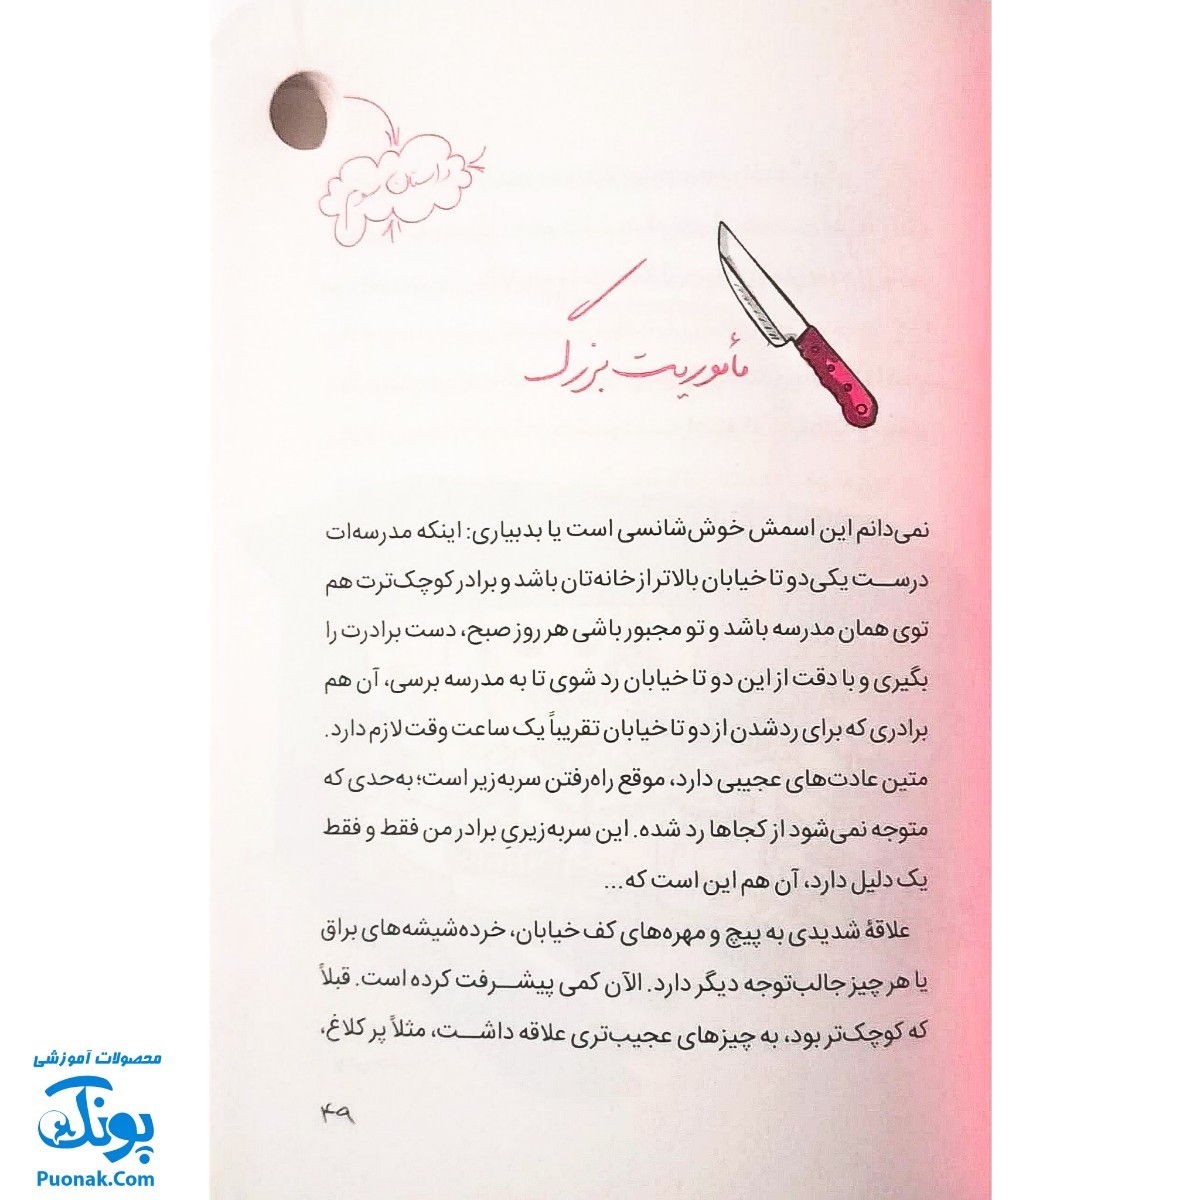 داستان سوم
مأموریت بزرگ
نمی‌دانم این اسمش خوش‌شانسی است یا بدبیاری: اینکه مدرسه‌ات
درست یکی‌دو تا خیابان بالاتر از خانه‌تان باشد و برادر کوچک‌ترت هم
توی همان مدرسه باشد و تو مجبور باشی هر روز صبح، دست برادرت را
بگیری و با دقت از این دو تا خیابان رد شوی تا به مدرسه برسی، آن هم
برادری که برای ردشدن از دو تا خیابان تقریباً یک ساعت وقت لازم دارد.
متین عادت‌های عجیبی دارد، موقع راه‌رفتن سربه‌زیر است؛ به‌حدی که
متوجه نمی‌شود از کجاها رد شده. این سربه‌زیریِ برادر من فقط و فقط
یک دلیل دارد، آن هم این است که...
علاقهٔ شدیدی به پیچ و مهره‌های کف خیابان، خرده‌شیشه‌های براق
یا هر چیز جالب‌توجه دیگر دارد. الآن کمی پیشرفت کرده است. قبلاً
که کوچک‌تر بود، به چیزهای عجیب‌تری علاقه داشت، مثلاً پر کلاغ،
۴۹
محصولات آموزشی
پونک
Puonak.Com